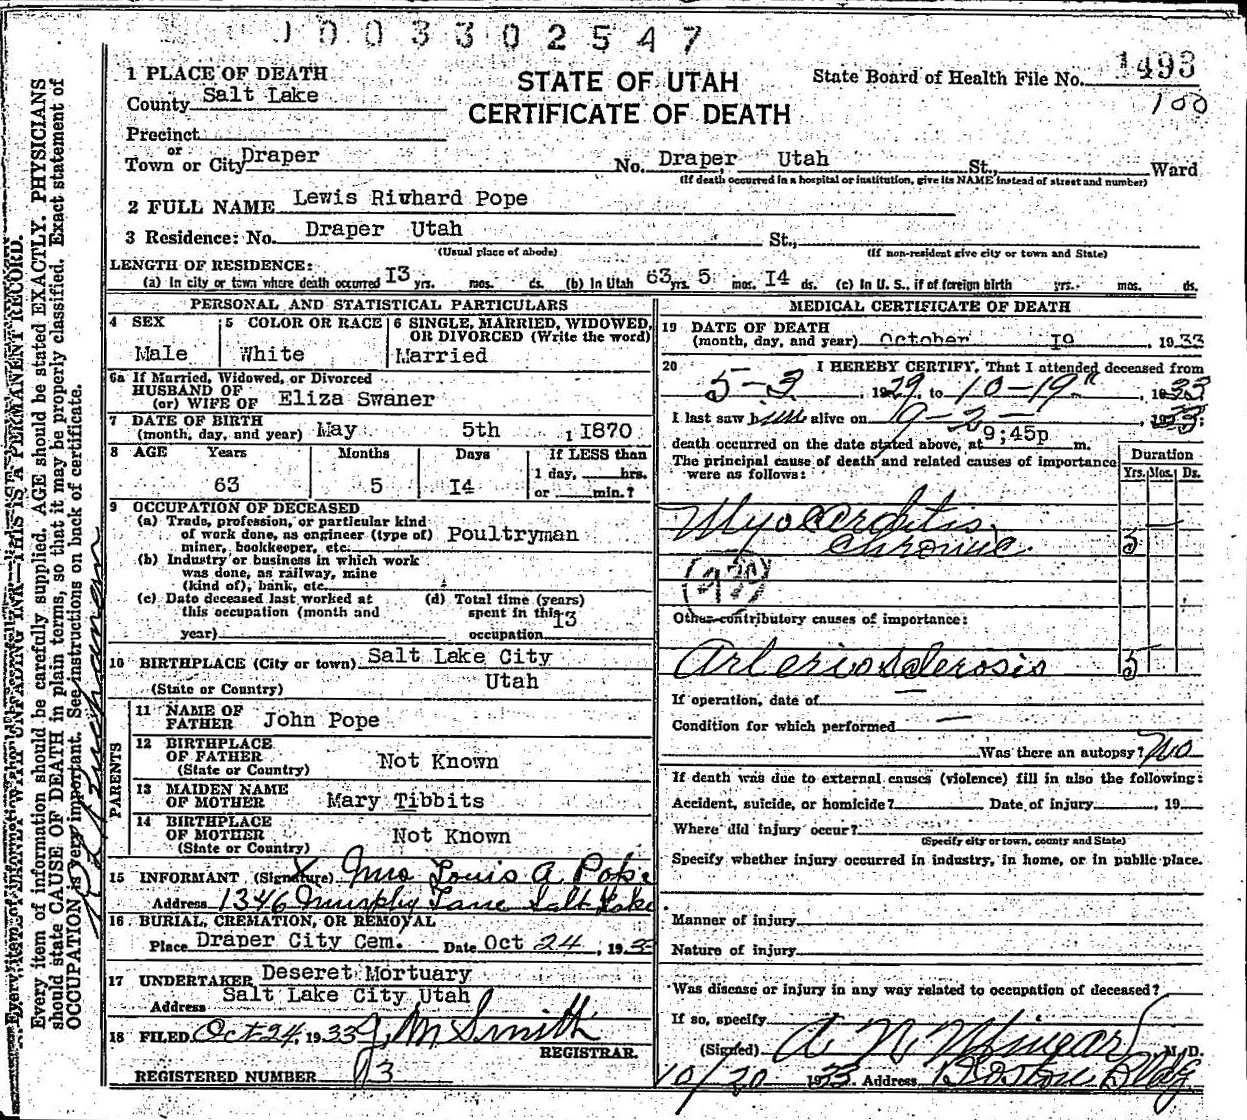 1003302547
STATE OF UTAH
CERTIFICATE OF DEATH
State Board of Health File No. 1493
100
1 PLACE OF DEATH
County Salt Lake
Precinct
or
Town or City Draper No. Draper, Utah St., Ward
(If death occurred in a hospital or institution, give its NAME instead of street and number)
2 FULL NAME Lewis Rivhard Pope
3 Residence: No. Draper Utah St.,
(Usual place of abode) (If non-resident give city or town and State)
LENGTH OF RESIDENCE:
(a) In city or town where death occurred 13 yrs. mos. ds. (b) In Utah 63 yrs. 5 mos. 14 ds. (c) In U. S., if of foreign birth yrs. mos. ds.
PERSONAL AND STATISTICAL PARTICULARS
4 SEX
Male
5 COLOR OR RACE
White
6 SINGLE, MARRIED, WIDOWED,
OR DIVORCED (Write the word)
Married
6a If Married, Widowed, or Divorced
HUSBAND OF
(or) WIFE OF Eliza Swaner
7 DATE OF BIRTH
(month, day, and year) May 5th , 1870
8 AGE Years Months Days If LESS than
1 day, hrs.
63 5 14 or min.?
9 OCCUPATION OF DECEASED
(a) Trade, profession, or particular kind
of work done, as engineer (type of)
miner, bookkeeper, etc. Poultryman
(b) Industry or business in which work
was done, as railway, mine
(kind of), bank, etc.
(c) Date deceased last worked at
this occupation (month and
year)
(d) Total time (years)
spent in this 13
occupation
10 BIRTHPLACE (City or town) Salt Lake City
(State or Country) Utah
PARENTS
11 NAME OF
FATHER John Pope
12 BIRTHPLACE
OF FATHER
(State or Country) Not Known
13 MAIDEN NAME
OF MOTHER Mary Tibbits
14 BIRTHPLACE
OF MOTHER
(State or Country) Not Known
15 INFORMANT (Signature) X Mrs Louis A Pope
Address 1346 Murphy Lane Salt Lake
16 BURIAL, CREMATION, OR REMOVAL
Place Draper City Cem. Date Oct 24, 1933
17 UNDERTAKER Deseret Mortuary
Address Salt Lake City Utah
18 FILED Oct 24, 1933 J M Smith
REGISTRAR.
REGISTERED NUMBER 13
MEDICAL CERTIFICATE OF DEATH
19 DATE OF DEATH
(month, day, and year) October 19 , 1933
20 I HEREBY CERTIFY, That I attended deceased from
5-3, 1929, to 10-19, 1933
I last saw him alive on 9-2-, 1933
death occurred on the date stated above, at 9;45p m.
The principal cause of death and related causes of importance
were as follows:
Duration
Yrs. Mos. Ds.
Myocarditis
chronic. 5
Other contributory causes of importance:
Arteriosclerosis 5
If operation, date of
Condition for which performed —
Was there an autopsy? No
If death was due to external causes (violence) fill in also the following:
Accident, suicide, or homicide? Date of injury , 19
Where did injury occur?
(Specify city or town, county and State)
Specify whether injury occurred in industry, in home, or in public place.
Manner of injury
Nature of injury
Was disease or injury in any way related to occupation of deceased?
If so, specify
(Signed) A. N. M. D.
10/20 1933 Address Boston Bldg
Every item of information should be carefully supplied. AGE should be stated EXACTLY. PHYSICIANS
should state CAUSE OF DEATH in plain terms, so that it may be properly classified. Exact statement of
OCCUPATION is very important. See instructions on back of certificate.
WITH UNFADING INK—THIS IS A PERMANENT RECORD.